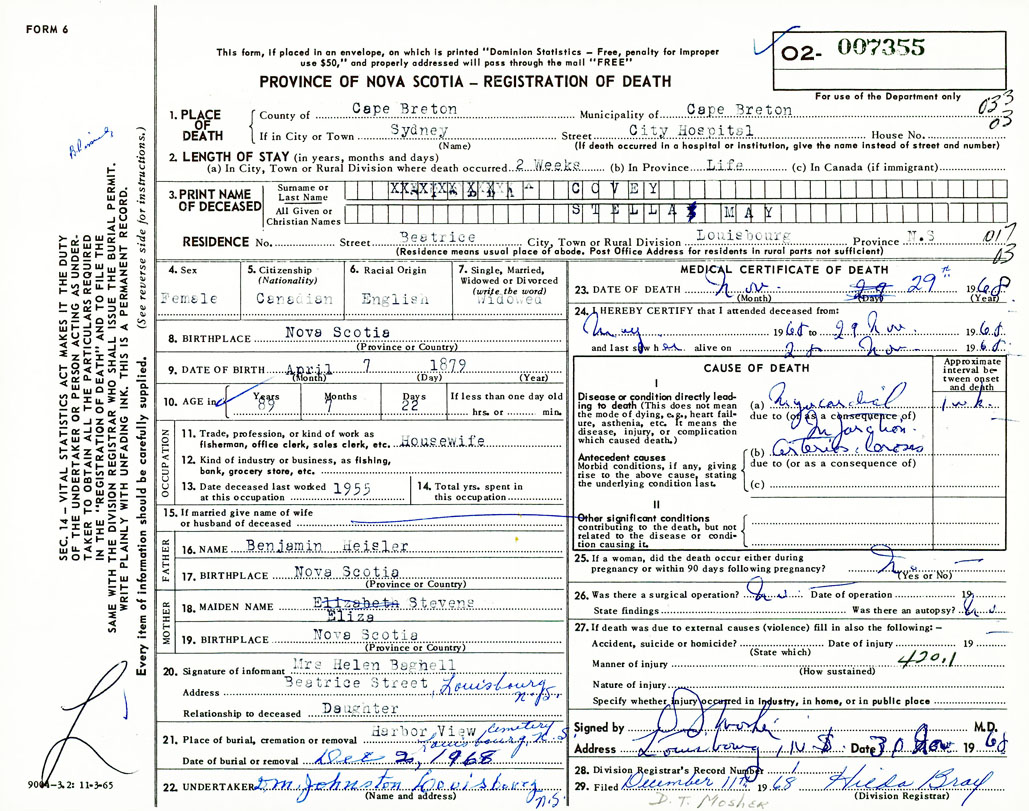 FORM 6
This form, if placed in an envelope, on which is printed "Dominion Statistics – Free, penalty for improper
use $50," and properly addressed will pass through the mail "FREE"
02- 007355
For use of the Department only
PROVINCE OF NOVA SCOTIA – REGISTRATION OF DEATH
033
03
1. PLACE OF DEATH
County of Cape Breton Municipality of Cape Breton
If in City or Town Sydney Street City Hospital House No.
(Name) (If death occurred in a hospital or institution, give the name instead of street and number)
2. LENGTH OF STAY (in years, months and days)
(a) In City, Town or Rural Division where death occurred 2 Weeks (b) In Province Life (c) In Canada (if immigrant)
3. PRINT NAME OF DECEASED
Surname or Last Name COVEY
All Given or Christian Names STELLA MAY
RESIDENCE No. Street Beatrice City, Town or Rural Division Louisbourg Province N.S
(Residence means usual place of abode. Post Office Address for residents in rural parts not sufficient)
017
03
4. Sex
Female
5. Citizenship (Nationality)
Canadian
6. Racial Origin
English
7. Single, Married, Widowed or Divorced (write the word)
Widowed
8. BIRTHPLACE Nova Scotia
(Province or Country)
9. DATE OF BIRTH April 7 1879
(Month) (Day) (Year)
10. AGE in Years Months Days If less than one day old
89 7 22 hrs. or min.
OCCUPATION
11. Trade, profession, or kind of work as
fisherman, office clerk, sales clerk, etc. Housewife
12. Kind of industry or business, as fishing,
bank, grocery store, etc.
13. Date deceased last worked at this occupation 1955
14. Total yrs. spent in this occupation
15. If married give name of wife
or husband of deceased
FATHER
16. NAME Benjamin Heisler
17. BIRTHPLACE Nova Scotia
(Province or Country)
MOTHER
18. MAIDEN NAME Elizabeth Stevens
Eliza
19. BIRTHPLACE Nova Scotia
(Province or Country)
20. Signature of informant Mrs Helen Baghell
Address Beatrice Street, Louisbourg N.S.
Relationship to deceased Daughter
21. Place of burial, cremation or removal Harbor View cemetery Louisbourg N.S
Date of burial or removal Dec 2, 1968
22. UNDERTAKER D.M. Johnston Louisburg N.S.
(Name and address)
MEDICAL CERTIFICATE OF DEATH
23. DATE OF DEATH Nov 29 29th 1968
(Month) (Day) (Year)
24. I HEREBY CERTIFY that I attended deceased from:
May 1968 to 29 Nov 1968
and last saw her alive on 28 Nov 1968
CAUSE OF DEATH
Approximate interval between onset and death
I
Disease or condition directly leading to death (This does not
mean the mode of dying, e.g., heart failure, asthenia, etc. It means the
disease, injury, or complication
which caused death.)
(a) Myocardial 1 wk.
due to (or as a consequence of)
Infarction
Antecedent causes
Morbid conditions, if any, giving
rise to the above cause, stating
the underlying condition last.
(b) Arteriosclerosis
due to (or as a consequence of)
(c)
II
Other significant conditions
contributing to the death, but not
related to the disease or condition causing it.
25. If a woman, did the death occur either during
pregnancy or within 90 days following pregnancy? No
(Yes or No)
26. Was there a surgical operation? No Date of operation 19
State findings Was there an autopsy? No
27. If death was due to external causes (violence) fill in also the following: –
Accident, suicide or homicide? Date of injury 19
(State which)
Manner of injury 420.1
(How sustained)
Nature of injury
Specify whether injury occurred in industry, in home, or in public place
Signed by M.D.
Address Louisbourg, N.S. Date 30 Nov 1968
28. Division Registrar's Record Number
29. Filed December 11th 1968 Hilda Bray
(Division Registrar)
D. T. MOSHER
SEC. 14 – VITAL STATISTICS ACT MAKES IT THE DUTY
OF THE UNDERTAKER OR PERSON ACTING AS UNDER-
TAKER TO OBTAIN ALL THE PARTICULARS REQUIRED
IN THE "REGISTRATION OF DEATH" AND TO FILE THE
SAME WITH THE DIVISION REGISTRAR WHO SHALL ISSUE THE BURIAL PERMIT.
WRITE PLAINLY WITH UNFADING INK. THIS IS A PERMANENT RECORD.
Every item of information should be carefully supplied. (See reverse side for instructions.)
9004-3.2: 11-3-65